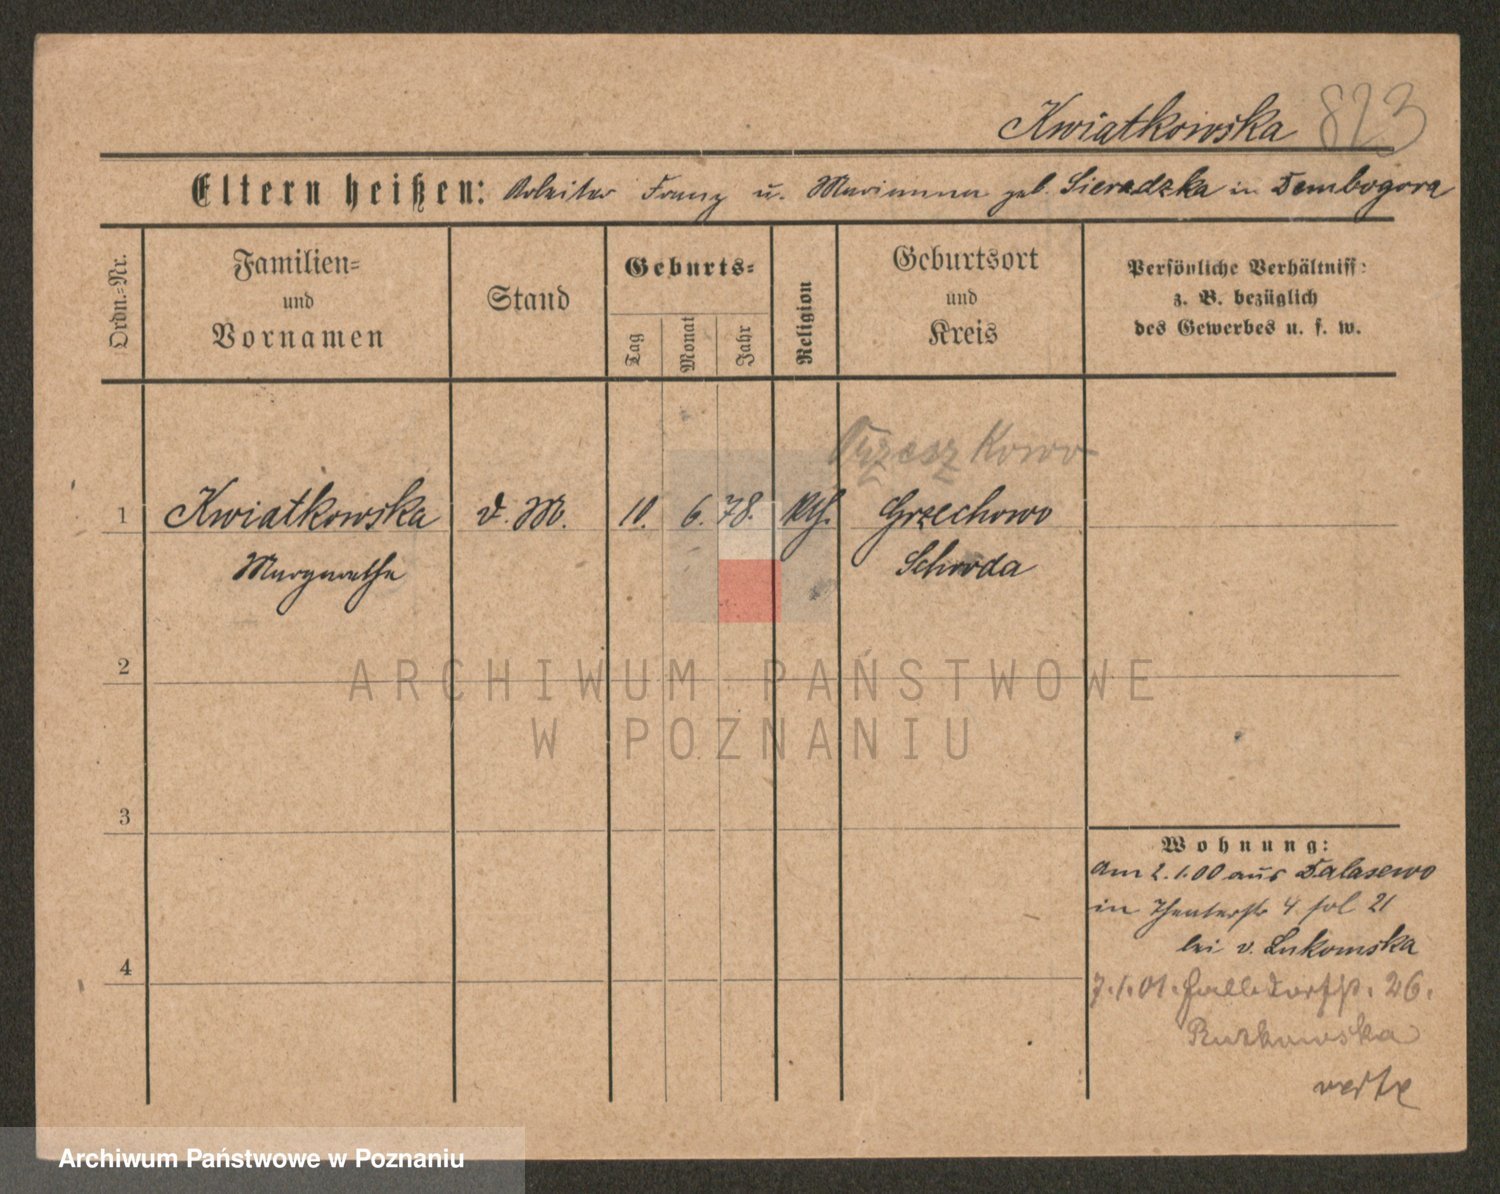 Kwiatkowska 823
Eltern heißen: Arbeiter Franz u. Marianna geb. Sieradzka in Dembogora
Ordn.-Nr.
Familien-
und
Vornamen
Stand
Geburts-
Tag
Monat
Jahr
Religion
Geburtsort
und
Kreis
Persönliche Verhältniss:
z. B. bezüglich
des Gewerbes u. s. w.
1 Kwiatkowska d. M. 10. 6. 78. kth. Grzechowo
Margarethe Schroda
2
ARCHIWUM PAŃSTWOWE
W POZNANIU
3
4
Wohnung:
am 2.1.00 aus Dalasewo
in Theaterstr 4 bei 21
bei v. Lukomska
7.1.01. Halbdorfstr. 26.
verte
Archiwum Państwowe w Poznaniu